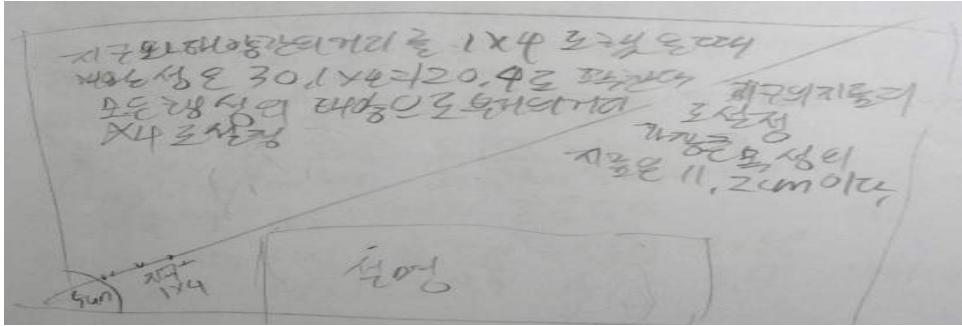 지구와 태양간의 거리를 1X4 로 했을때
해왕성은 30.1X4=120.4로 한다
모든행성의 태양으로부터의거리
X4 로설정
지구의지름의
로설정
가장큰 목성의
지름은 11.2cm이다
Sun
지구
1X4
설명